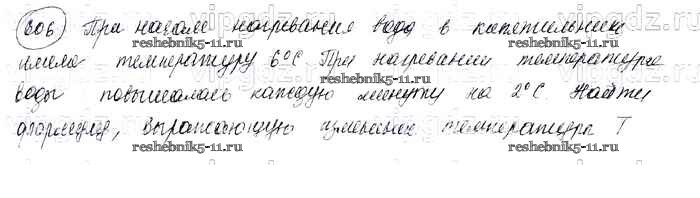 606 При начале нагревания вода в кипятильнике
reshebnik5-11.ru reshebnik5-11.ru
имела температуру 6°С При нагревании температура
воды повышалась каждую минуту на 2°С Найти
reshebnik5-11.ru reshebnik5-11.ru
формулу, выражающую изменение температуры T
reshebnik5-11.ru reshebnik5-11.ru